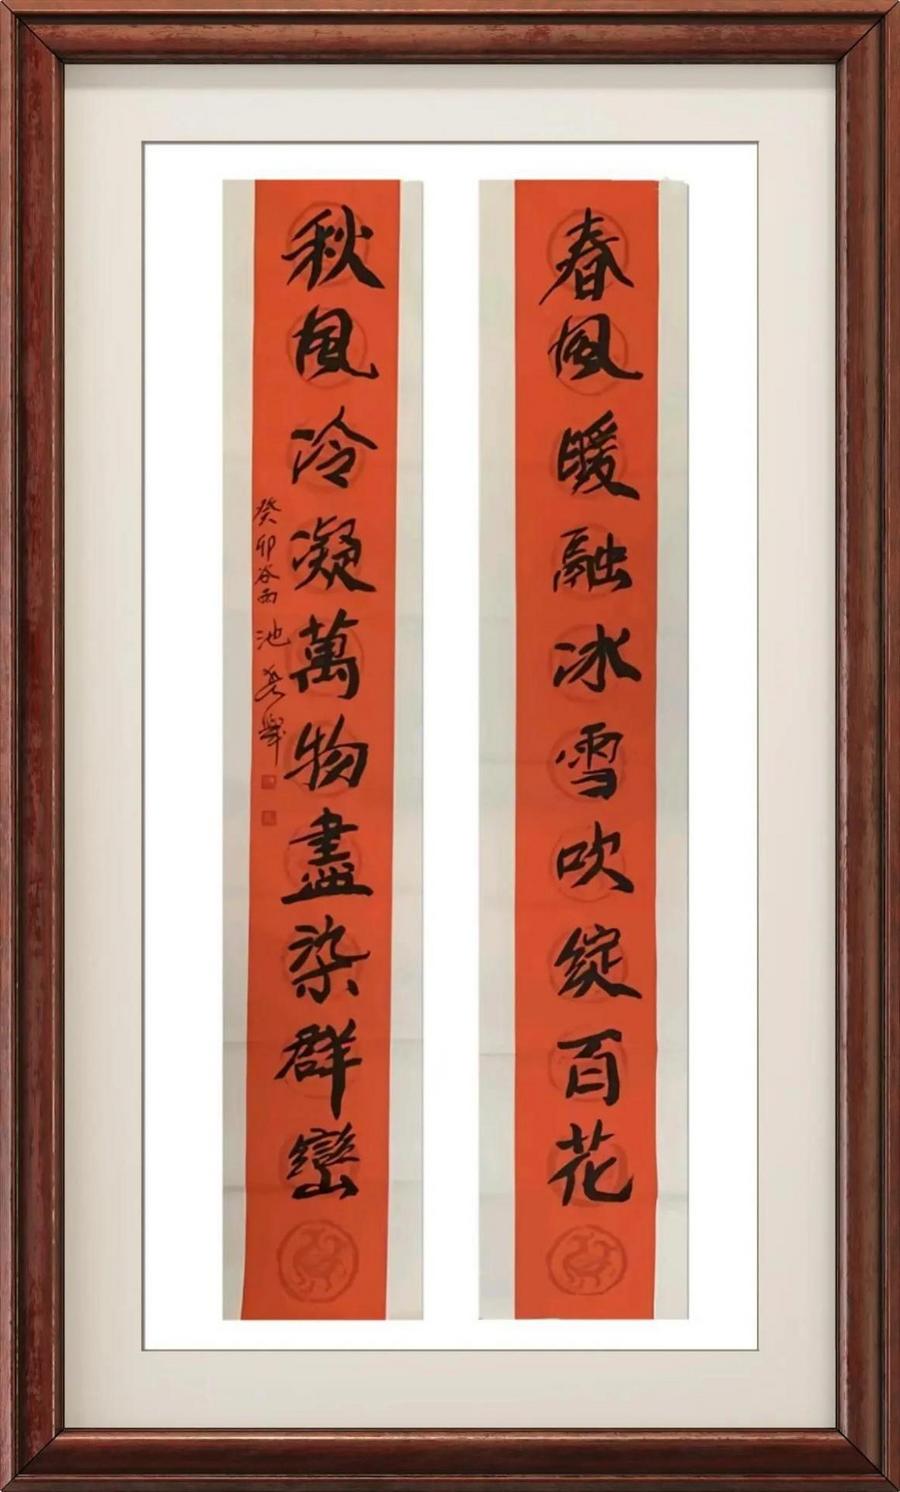 春風暖融冰雪吹綻百花
秋風冷凝萬物盡染群巒
癸卯谷雨 池